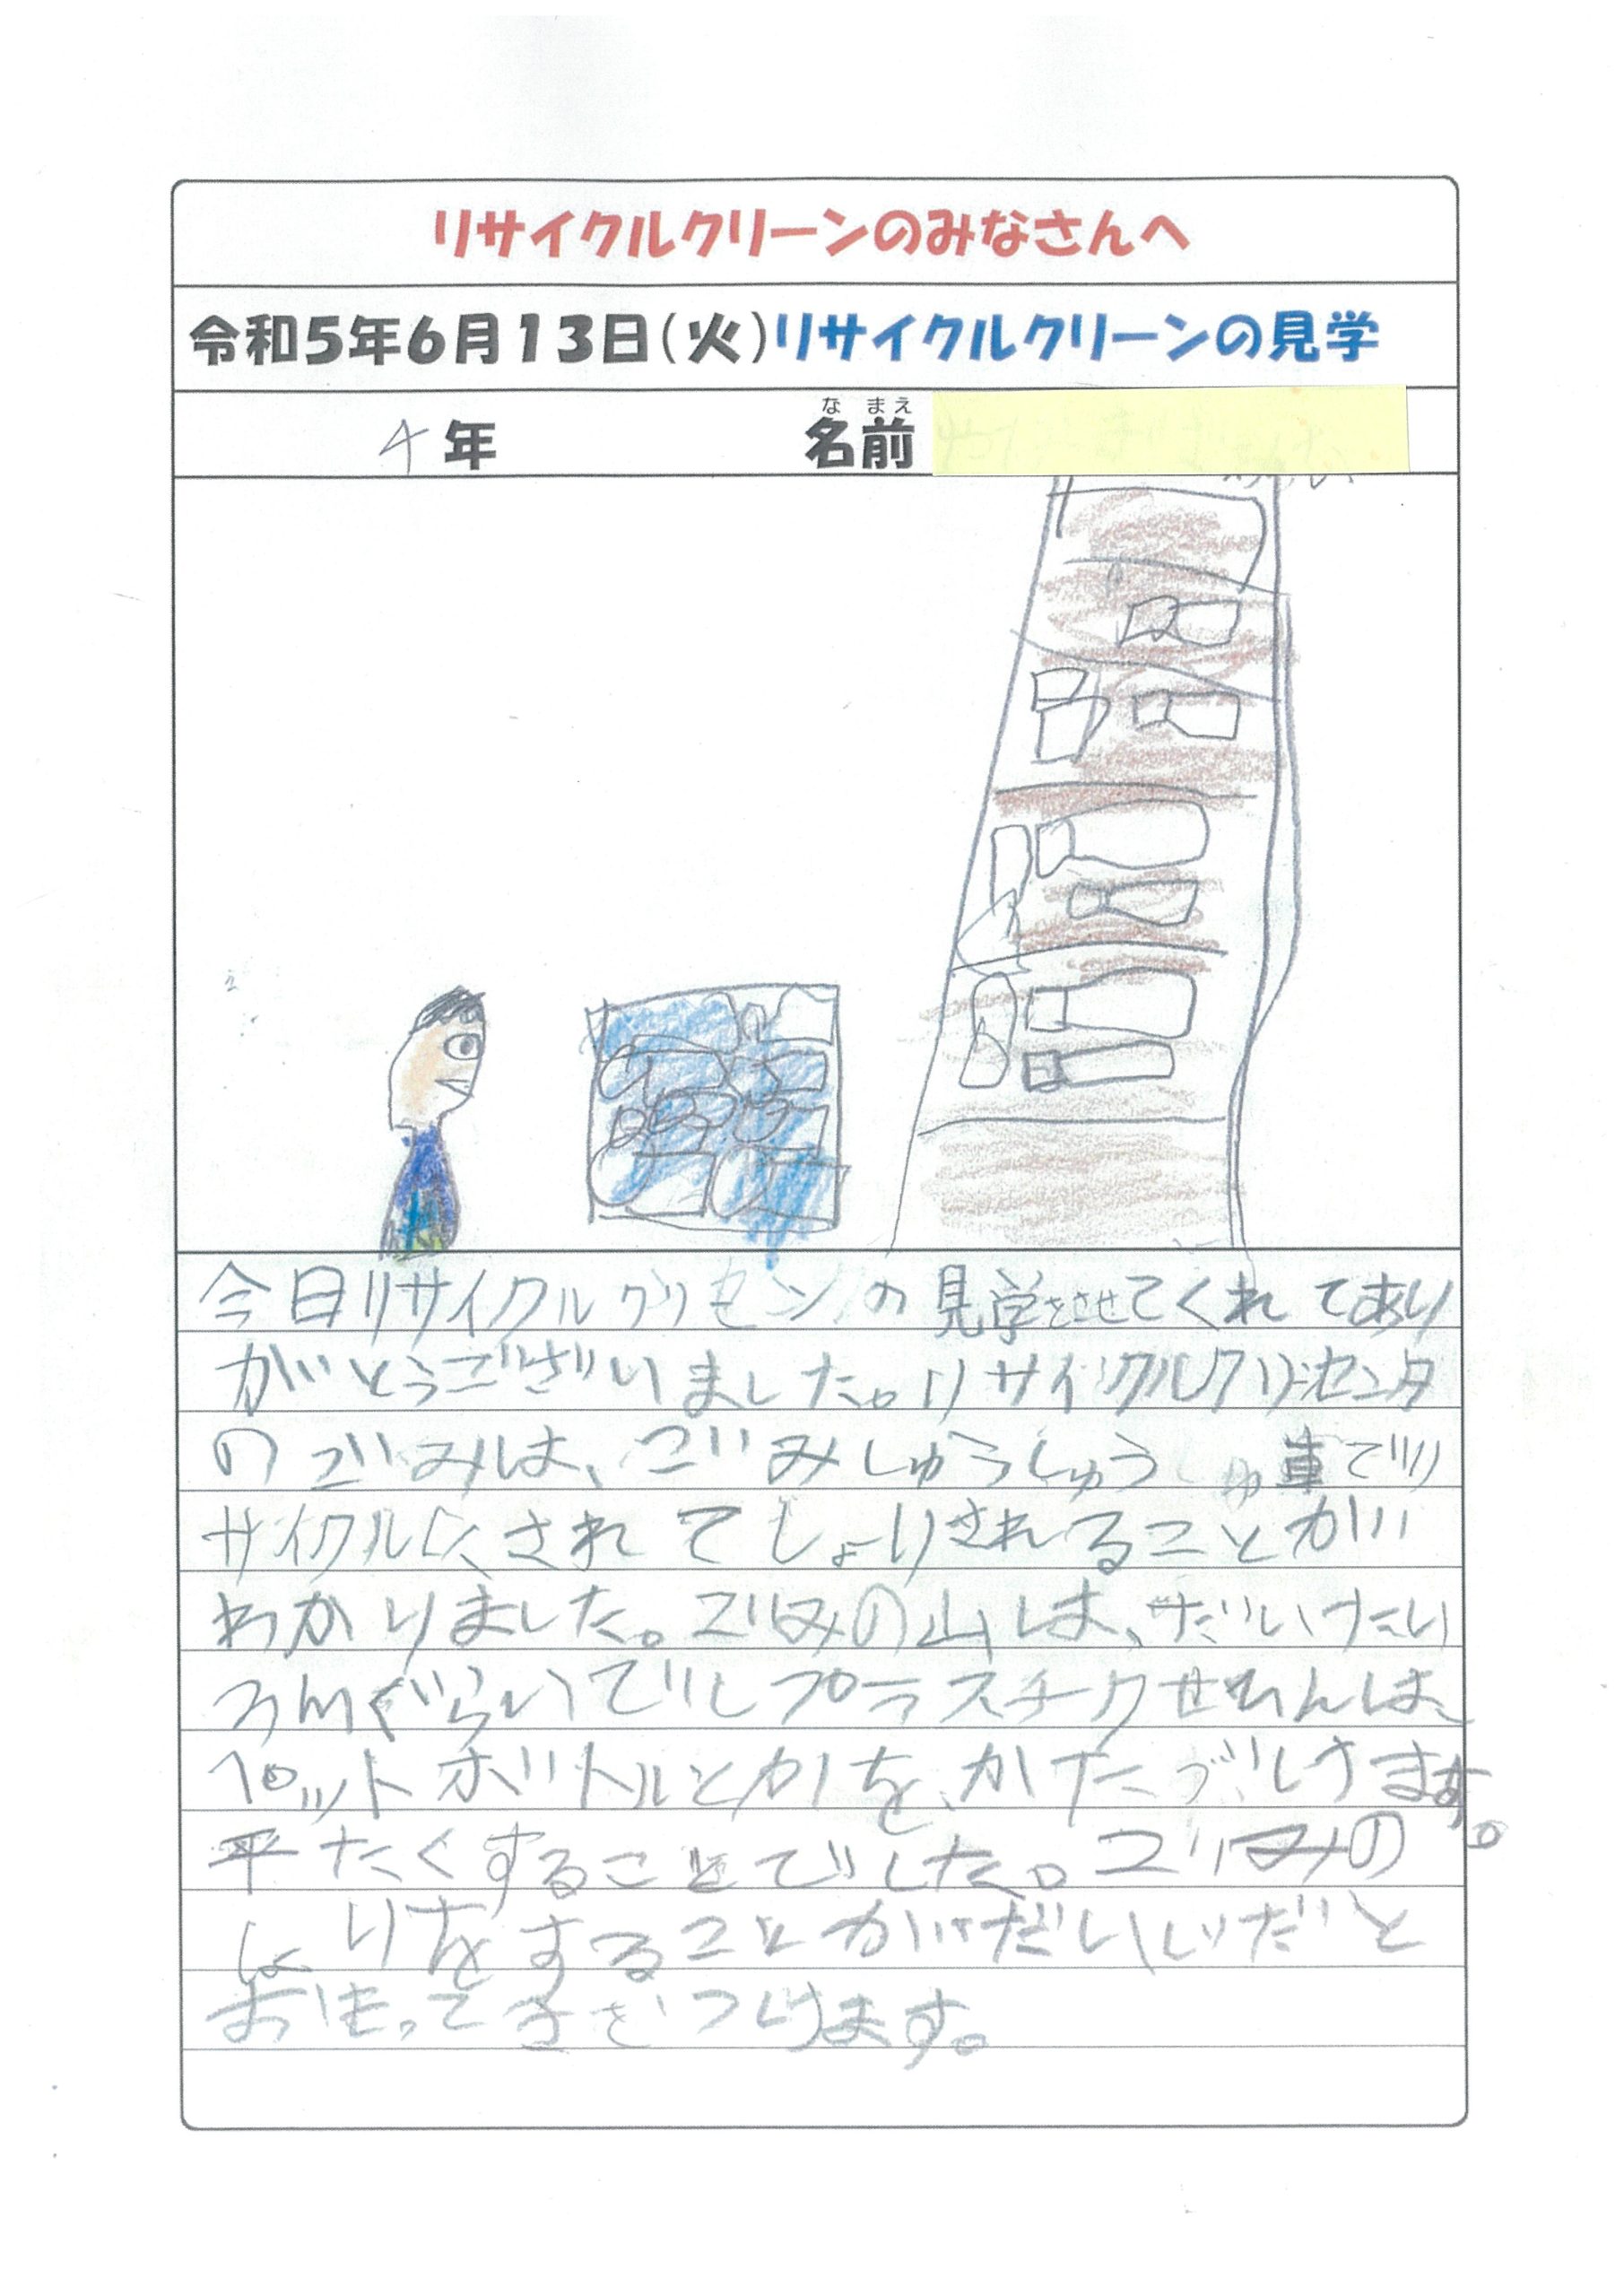 リサイクルクリーンのみなさんへ
令和5年6月13日(火)リサイクルクリーンの見学
4年 名前
な まえ
今日リサイクルクリセンの見学をさせてくれてあり
がとうございました。リサイクルクリーセンタ
のごみは、ごみしゅうしゅう車でリ
サイクルされてしょりされることが
わかりました。ごみの山は、だいたい
3mぐらいでしプラスチクせんは
ペットボトルとかを、かたづけます。
平たくすることでした。ごみの
しょりをすることがだいじだと
おもってきをつけます。